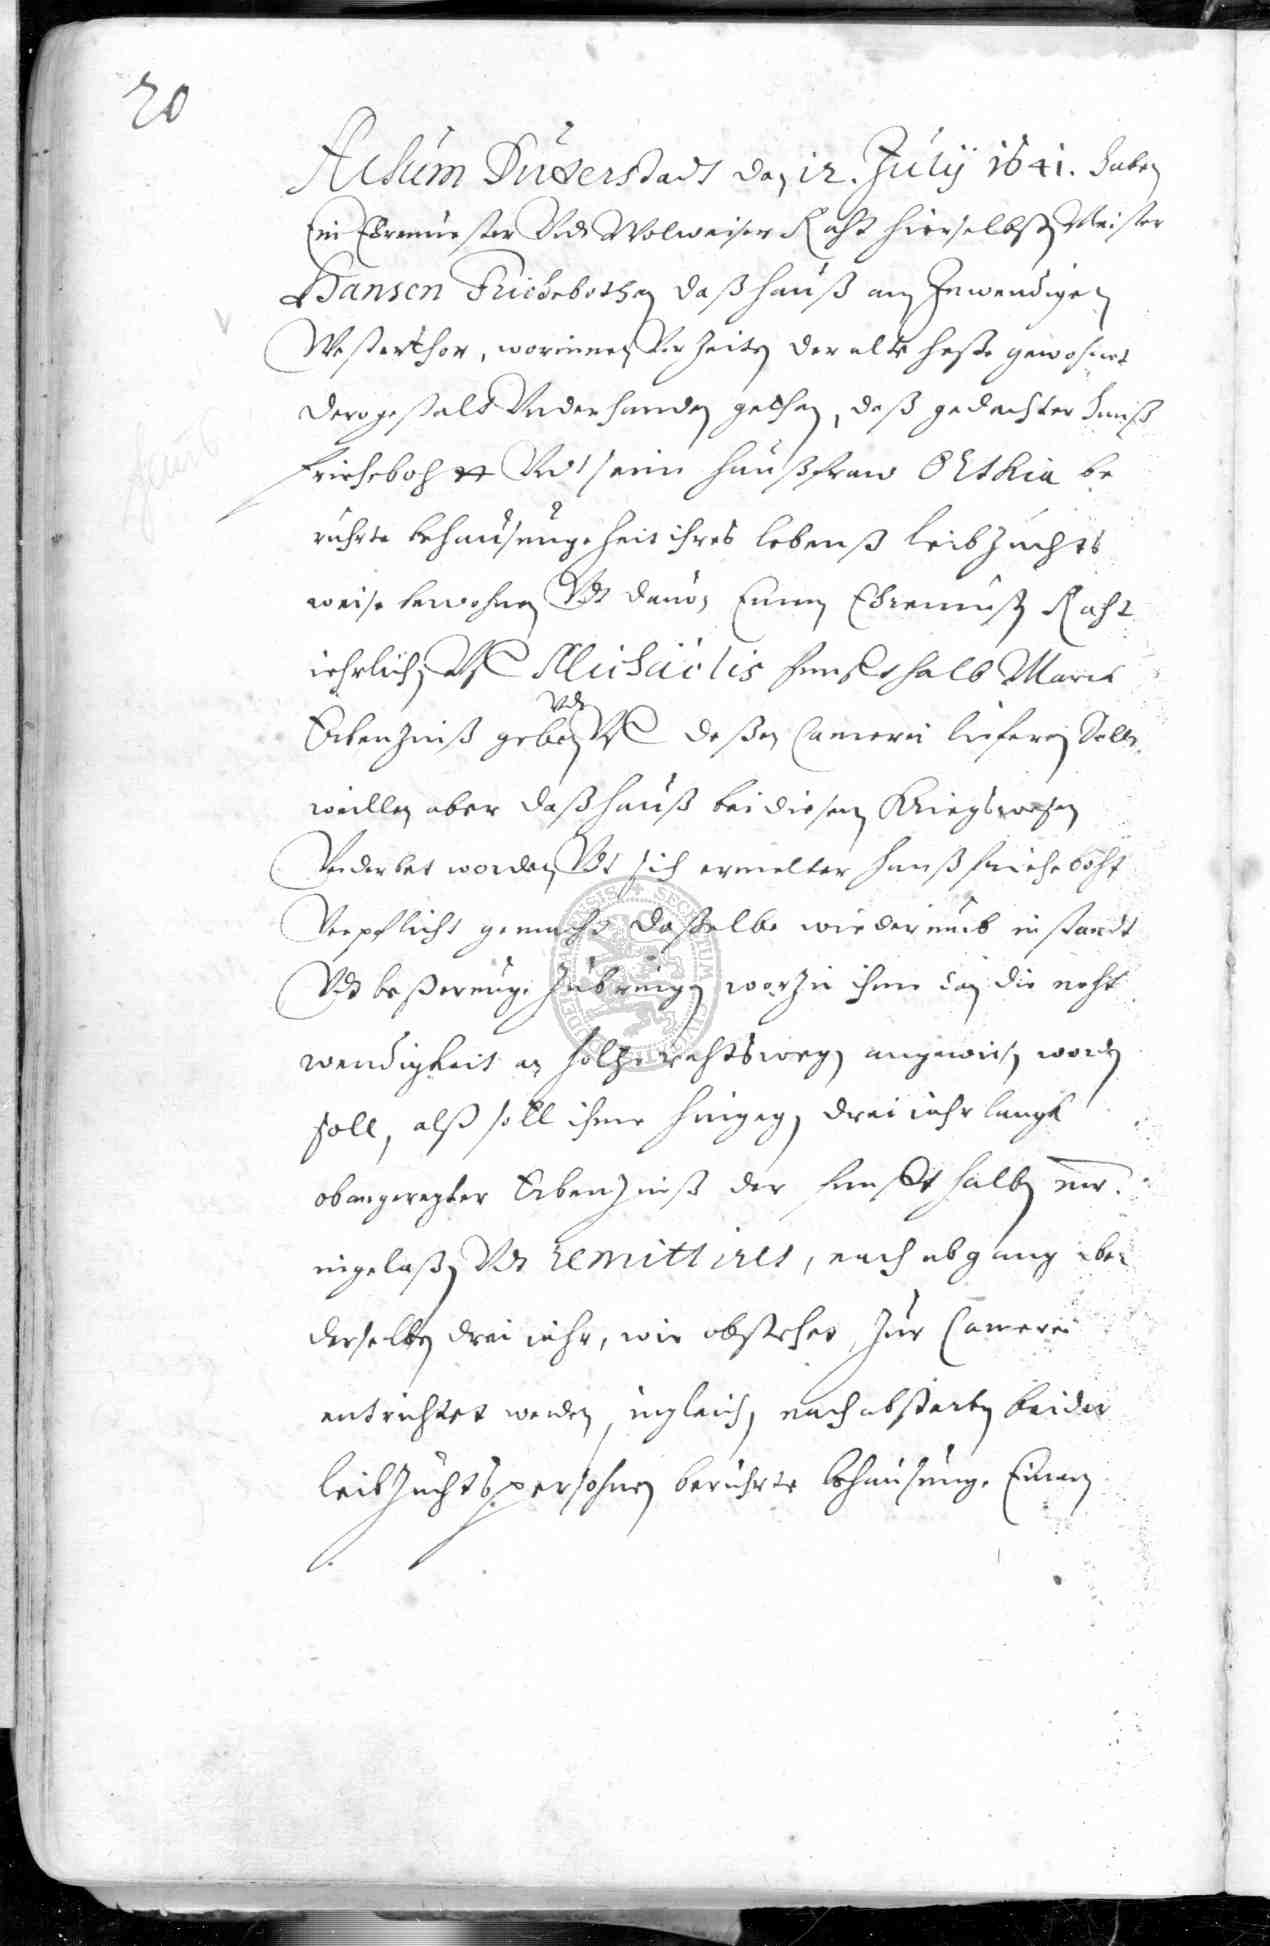 20
Actum Duderstadt den 12. Julÿ 1641. haben
Ein Ehrenvester Vndt Wolweiser Raht hierselbst Meister
Hansen Frichebothen daß hauß am Inwendigen
Westerthor, worinnen Vor Zeiten der alte heße gewohnet
dero gestalt Vnderhanden gethan, daß gedachter hanß
fricheboht Vndt seine haußfraw Orthia be
ruhrte behausunge Zeit ihres lebenß leibZuchts
weise bewohnen Vndt davon Einem Ehrenvest Raht
iehrlich Vff Michäelis funffthalb Marck
ErbenZinß geben Vndt Vff deßen Camerei lieferen solle,
weillen aber daß hauß bei diesem Kriegswesen
Verderbet worden Vndt sich ermelter hanß fricheboht
Verpflicht gemacht daßelbe wiederumb in standt
Vndt beßerunge Zubringen worZu ihme dan die noht
wendigkeit an holtz rechtswegen angewiesen werden
soll, alß soll ihme hingegen drei iahr langk
obangeregter ErbenZinß der funffthalben mr.
nigelaßen Vndt remittiret, nach abgang aber
derselben drei iahr, wie obstehet Zur Camerei
entrichtet werden, ingleichen nach absterben beider
leibZuchts persohnen beruhrte behausunge Einem